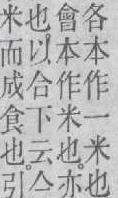 各本作一米也
會本作米也。亦
也。以合下云亼
米而成食也。引